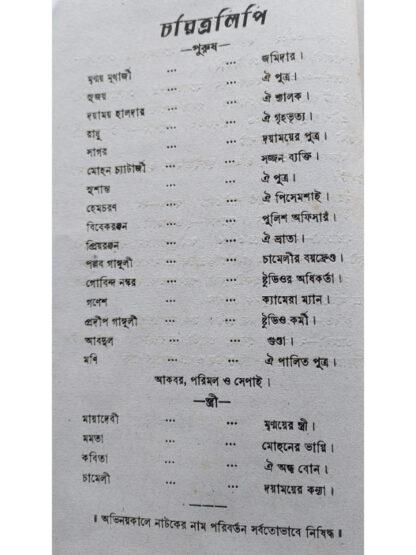 চরিত্রলিপি
—পুরুষ—
মৃন্ময় মুখার্জী ... ... জমিদার।
সুজয় ... ... ঐ পুত্র।
দয়াময় হালদার ... ... ঐ শ্যালক।
রাঘু ... ... ঐ গৃহভৃত্য।
সাগর ... ... দয়াময়ের পুত্র।
মোহন চ্যাটার্জী ... ... সজ্জন ব্যক্তি।
সুশান্ত ... ... ঐ পুত্র।
হেমচরণ ... ... ঐ পিসেমশাই।
বিবেকরঞ্জন ... ... পুলিশ অফিসার।
প্রিয়রঞ্জন ... ... ঐ ভ্রাতা।
পল্লব গাঙ্গুলী ... ... চামেলীর বয়ফ্রেণ্ড।
গোবিন্দ নস্কর ... ... ষ্টুডিওর অধিকর্তা।
গণেশ ... ... ক্যামেরা ম্যান।
প্রদীপ গাঙ্গুলী ... ... ষ্টুডিও কর্মী।
আবদুল ... ... গুণ্ডা।
মণি ... ... ঐ পালিত পুত্র।
আকবর, পরিমল ও সেপাই।
—স্ত্রী—
মায়াদেবী ... ... মৃন্ময়ের স্ত্রী।
মমতা ... ... মোহনের ভাগ্নি।
কবিতা ... ... ঐ অন্ধ বোন।
চামেলী ... ... দয়াময়ের কন্যা।
॥ অভিনয়কালে নাটকের নাম পরিবর্তন সর্বতোভাবে নিষিদ্ধ ॥